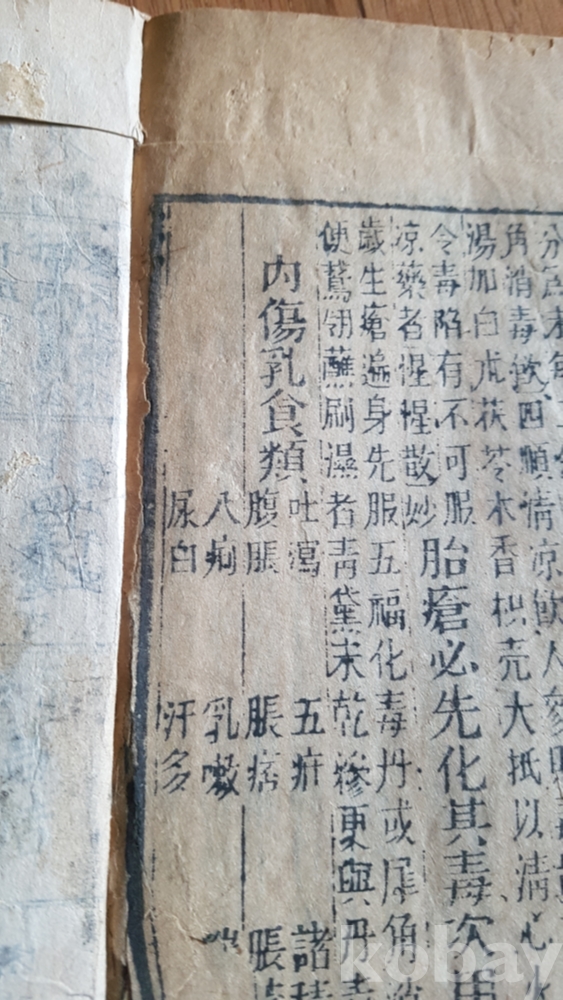 角消毒飲四順清凉飲人參
湯加白朮茯苓木香枳壳大抵以清心
令毒陷有不可服胎瘡必先化其毒次
凉藥者惺惺散妙
歲生瘡遍身先服五福化毒丹或犀角
使鵞翎蘸刷濕者青黛末乾摻更與丹
內傷乳食類
吐瀉 五疳 諸積
腹脹 脹痞 脹
八痢 乳嗽
尿白 汗多
kobay